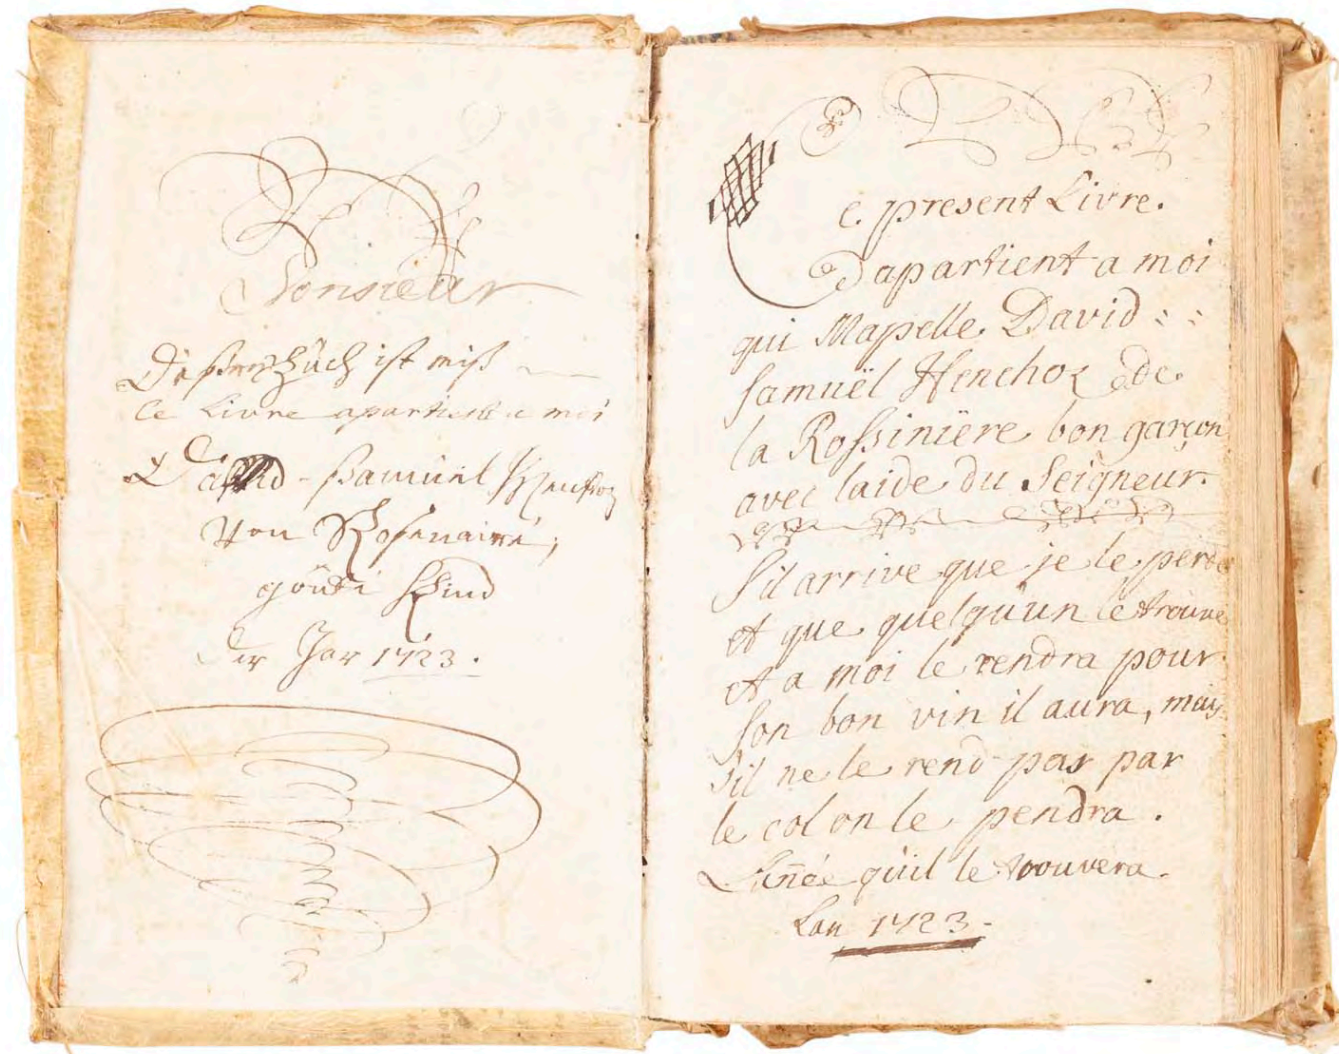 Monsieur
Diesses Buch ist miss
ce Livre apartient a moi
David - Samuel Henchoz
Von
Kind
Jar 1723.
Ce present Livre.
apartient a moi
qui Mapelle David
Samuël Henchoz de
la Rossiniere bon garçon
avec laide du Seigneur.
Sil arrive que je le perde
et que quelquun le trouve
et a moi le rendra pour
son bon vin il aura, mais
sil ne le rend pas par
le col on le pendra.
Lanée quil le trouvera.
Lan 1723.